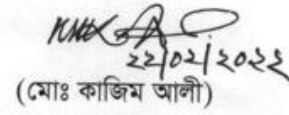 ২২/০২/২০২২
(মোঃ কাজিম আলী)